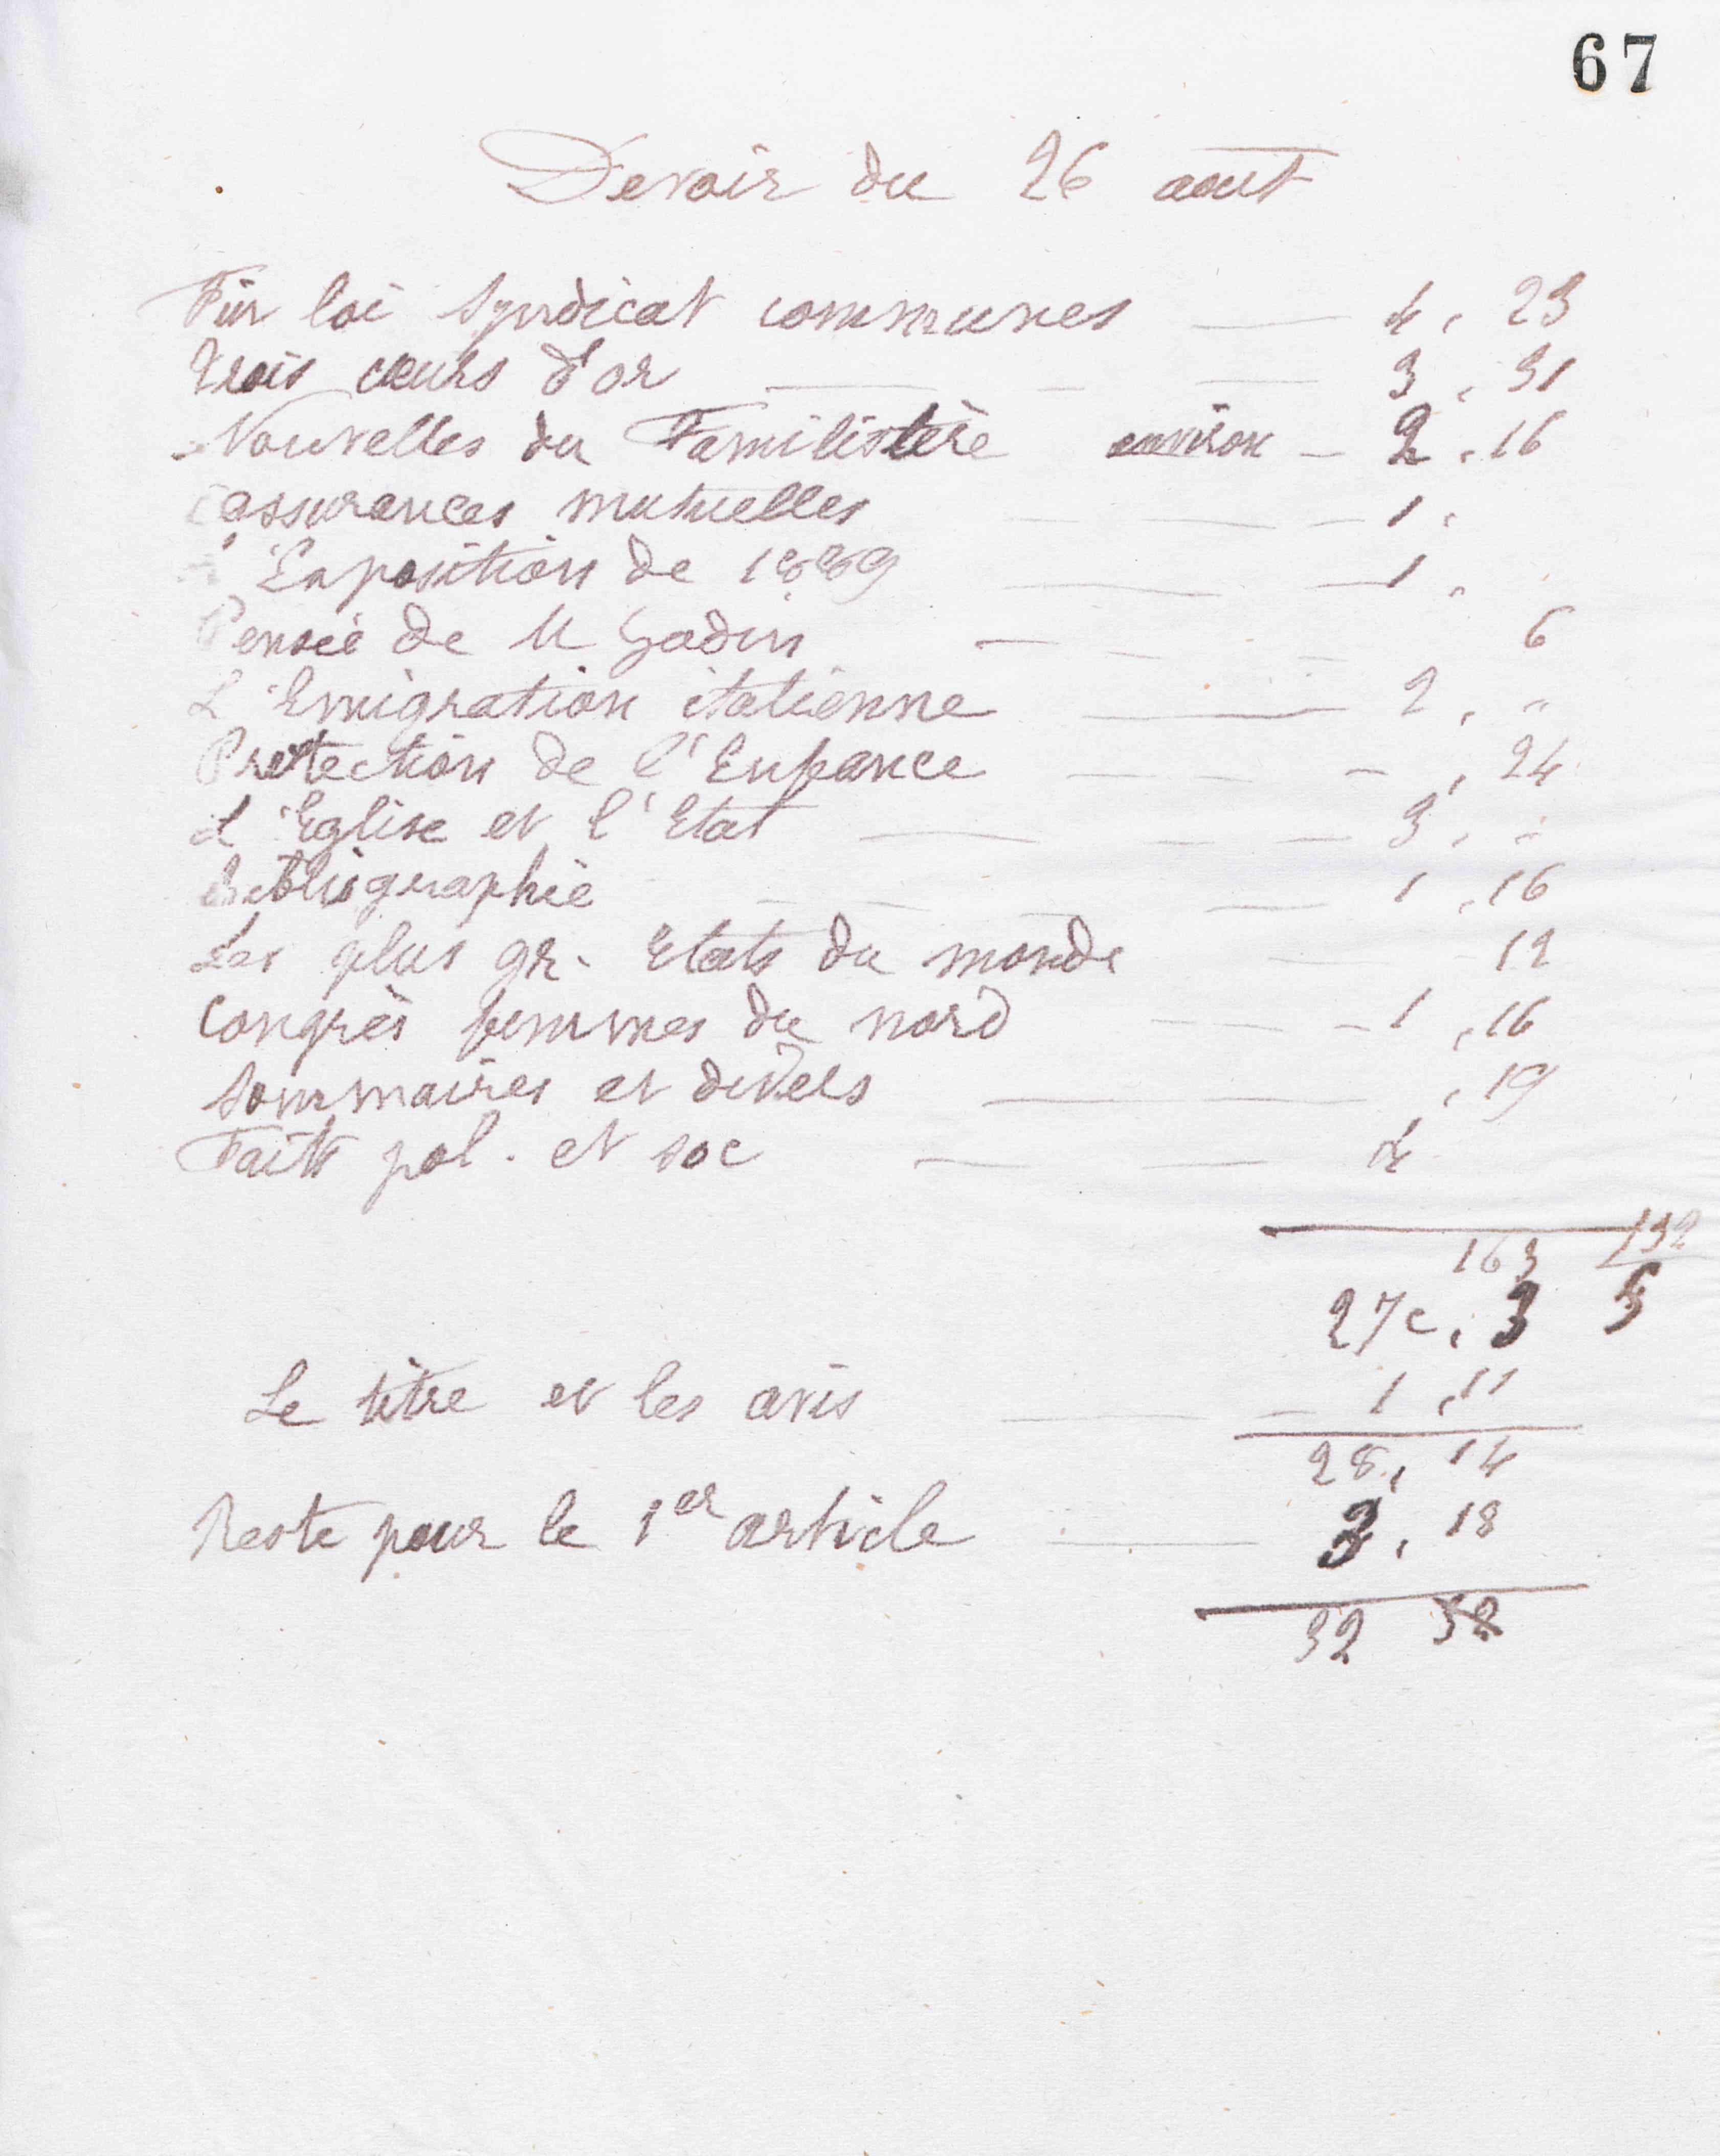 67
Devoir du 26 aout
Fin loi Syndicat communes — 4, 23
Trois cœurs d'or — 3, 31
Nouvelles du Familistère environ — 2, 16
assurances mutuelles — 1,
L'Exposition de 1889 — 1,
Pensée de M Godin — 6
L'Emigration italienne — 2, "
Protection de l'Enfance — , 24
L'Eglise et l'Etat — 3, "
Bibliographie — 1, 16
Les plus gr. Etats du monde — 12
Congrès femmes du nord — 1, 16
Sommaires et divers — , 19
Faits pol. et soc — 4
163 132
27c, 3 5
Le titre et les avis — 1, 11
28, 14
Reste pour le 1er article — 3, 18
32 32